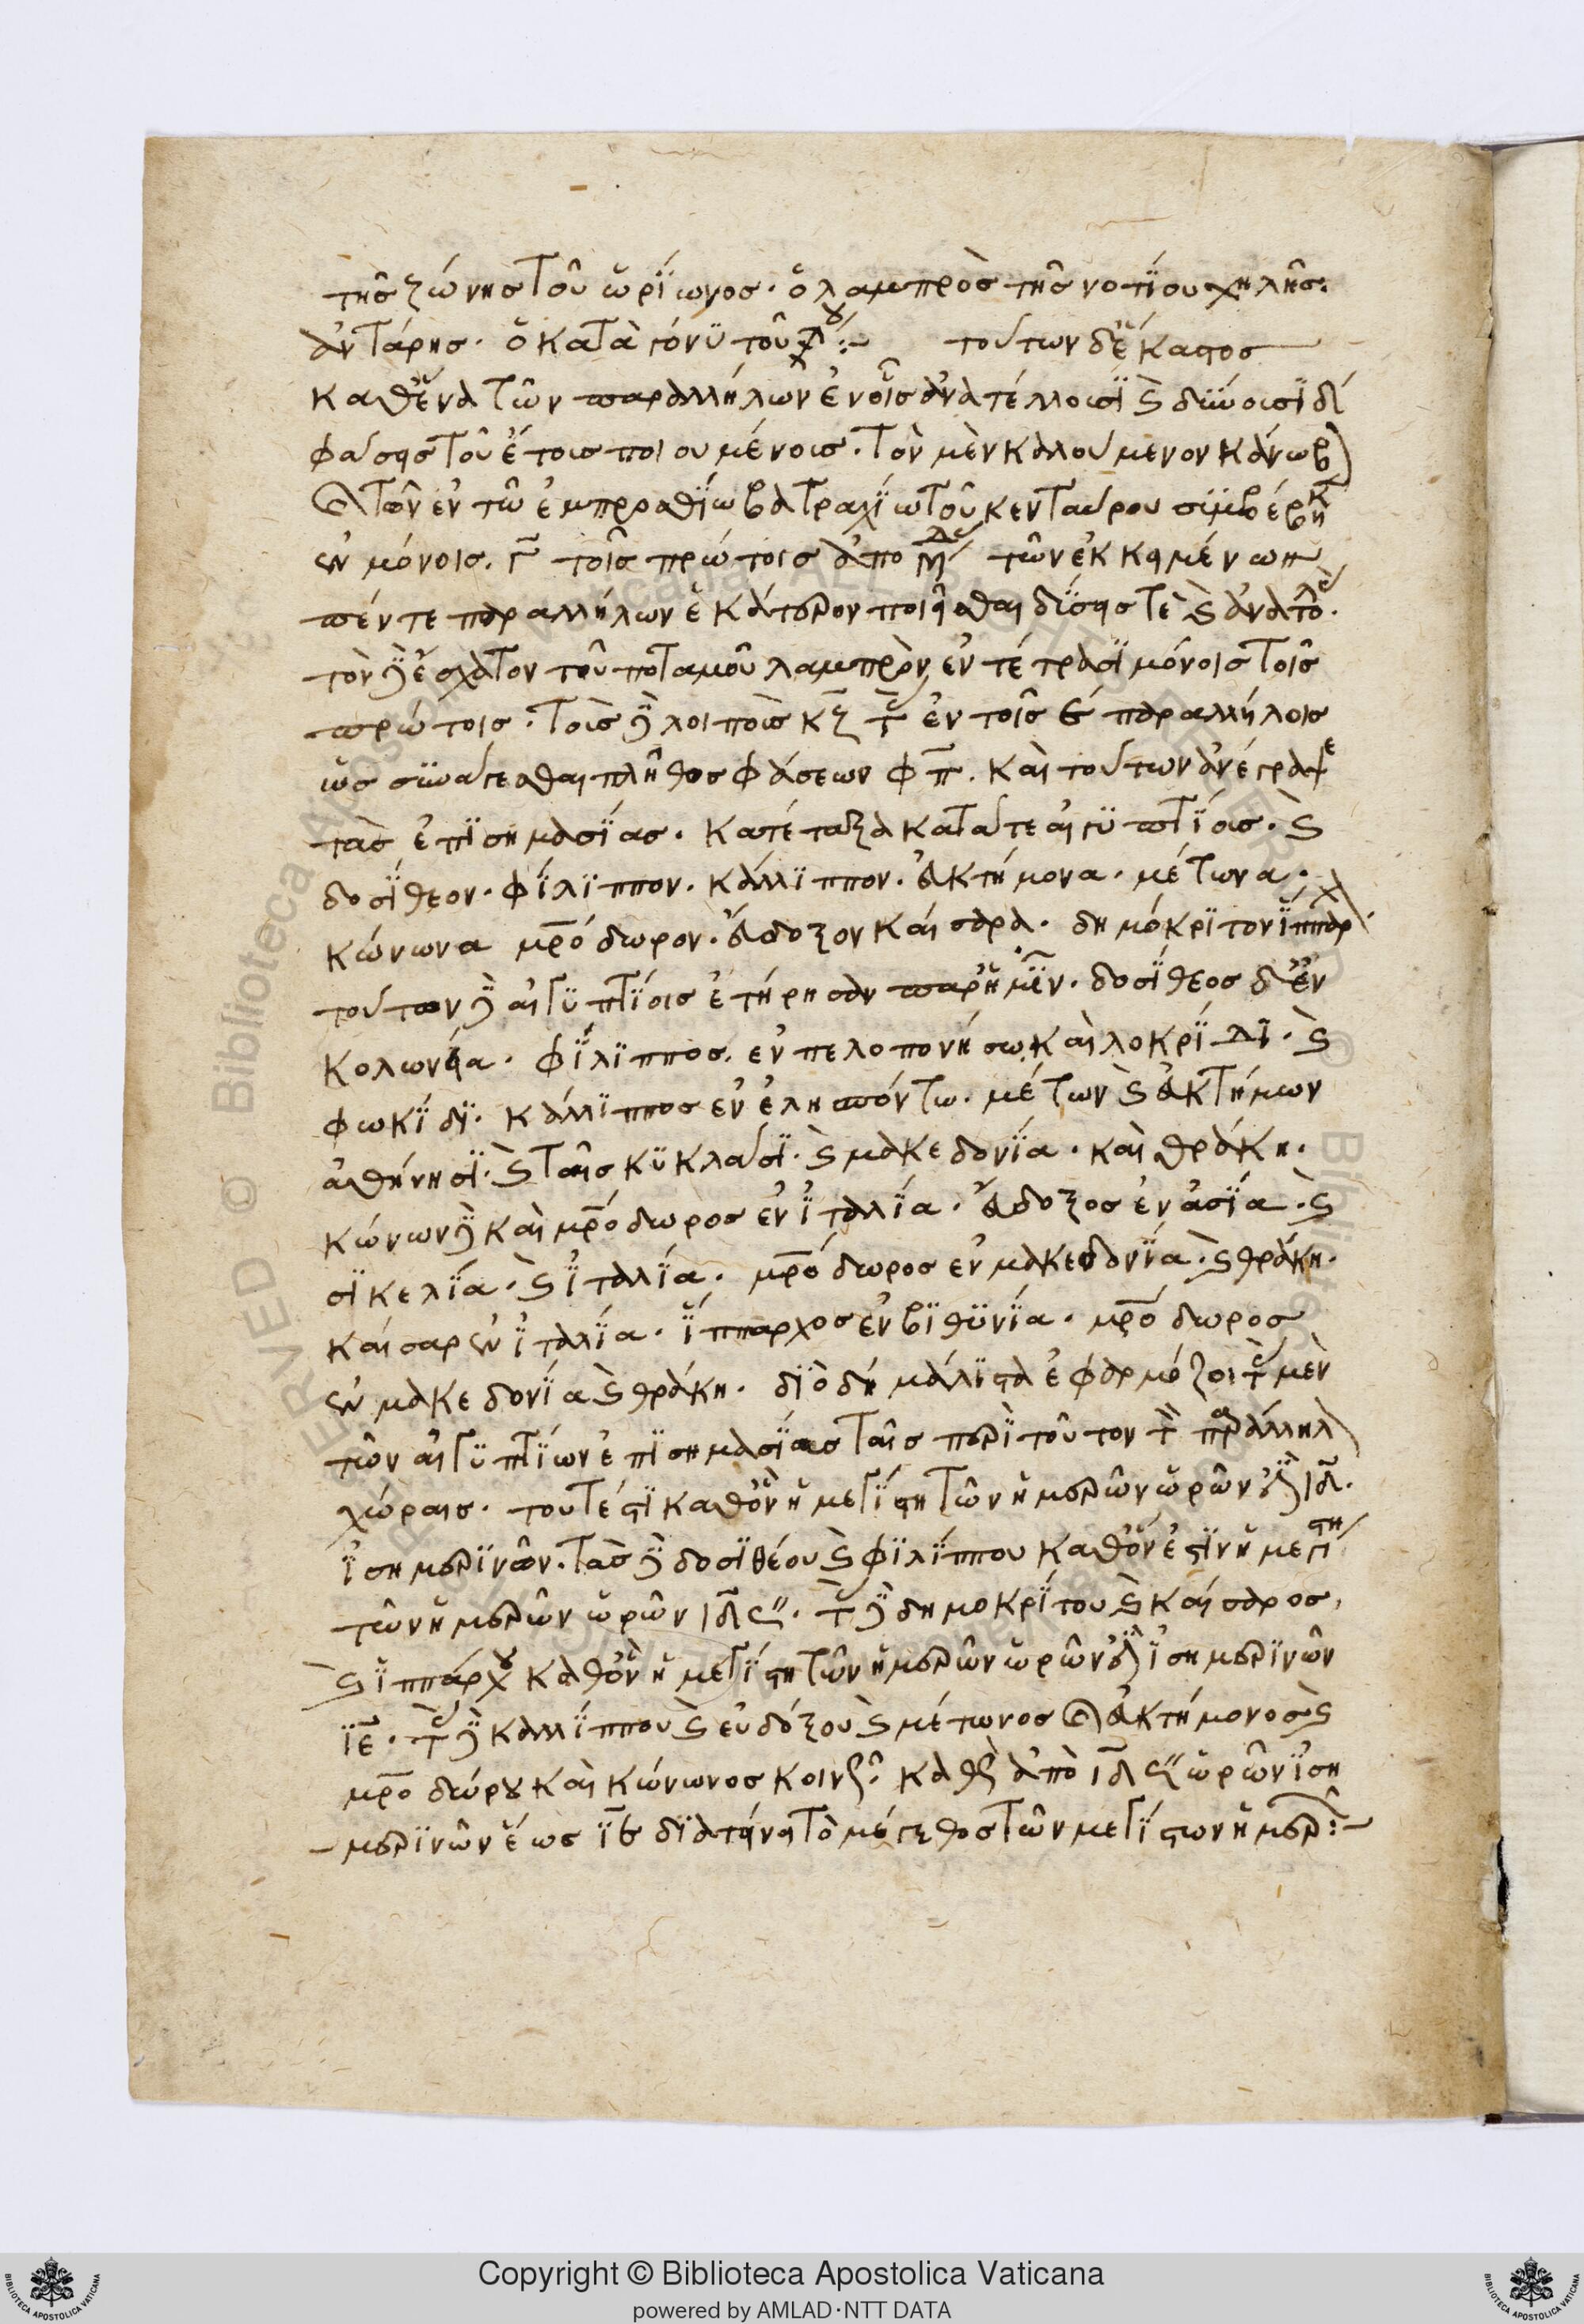 τῆς ζώνης τοῦ ὠρίωνος. ὁ λαμπρὸς τῆς νοτίου χηλῆς:
ἀντάρης. ὁ κατὰ γόνυ τοῦ :~ τούτων δὲ ἕκαστος
καθ' ἕνα τῶν παραλλήλων ἐν οἷς ἀνατέλλουσι καὶ δύνουσι δ'
φάσεις τοῦ ἔτους ποιουμένοις. τὸν μὲν καλούμενον κάνωβ
καὶ τὸν ἐν τῶ ἐμπροσθίω βατραχίω τοῦ κενταύρου συμβέβηκ
ἐν μόνοις. γ τοῖς πρώτοις ἀπὸ τῶν ἐκκειμένων
πέντε παραλλήλων ἑκάτερον ποιεῖσθαι δύσεις τὲ καὶ ἀνατο.
τὸν δὲ ἔσχατον τοῦ ποταμοῦ λαμπρὸν, ἐν τέτρασι μόνοις τοῖς
πρώτοις. τοὺς δὲ λοιποὺς κζ ἐν τοῖς ε παραλλήλοις
ὡς συνάγεσθαι πλῆθος φάσεων φπ. καὶ τούτων ἀνέγραψε
τὰς ἐπισημασίας. κατέταξα κατά τε αἰγυπτίους. καὶ
δοσίθεον. φίλιππον. κάλλιππον. εὐκτήμονα. μέτωνα.
κώνωνα μρόδωρον. εὔδοξον καίσαρα. δημόκριτον ἵππαρχ
τούτων δὲ αἰγυπτίοις ἐτήρησαν παρ' ἡμῖν. δοσίθεος δ' ἐν
κολωνεία. φίλιππος. ἐν πελοπονήσω. καὶ λοκρίδι. καὶ
φωκίδι. κάλλιππος ἐν ἐλησπόντω. μέτων καὶ εὐκτήμων
ἀθήνησι. καὶ ταῖς κυκλάσι. καὶ μακεδονία. καὶ θράκη.
κώνων δὲ καὶ μρόδωρος ἐν ἰταλία. εὔδοξος ἐν ἀσία. καὶ
σικελία. καὶ ἰταλία. μρόδωρος ἐν μακεδονία. καὶ θράκη.
καίσαρ ἐν ἰταλία. ἵππαρχος ἐν βιθυνία. μρόδωρος
ἐν μακεδονία καὶ θράκη. διὸ δὴ μάλιστα ἐφαρμόζοι τὰς μὲν
τῶν αἰγυπτίων ἐπισημασίας ταῖς περὶ τοῦτον τὸν παράλληλ
χώραις. τουτέστι καθ' ὃν ἡ μεγίστη τῶν ἡμερῶν ὡρῶν ἐστὶ ιδ.
ἰσημερινῶν. τὰς δὲ δοσιθέου καὶ φιλίππου καθ' ὃν ἐστὶν ἡ μεγίστη
τῶν ἡμερῶν ὡρῶν ιδς". τὰς δὲ δημοκρίτου καὶ καίσαρος,
καὶ ἱππάρχου καθ' ὃν ἡ μεγίστη τῶν ἡμερῶν ὡρῶν ἐστὶ ἰσημερινῶν
ιε. τὰς δὲ καλλίππου καὶ εὐδόξου καὶ μέτωνος καὶ εὐκτήμονος καὶ
μροδώρου καὶ κώνωνος κοινῶς. καθ' ἃς ἀπὸ ιδς" ὡρῶν ἰση
μερινῶν ἕως ιε διατείνει τὸ μέγεθος τῶν μεγίστων ἡμερ:~
Copyright © Biblioteca Apostolica Vaticana
powered by AMLAD·NTT DATA